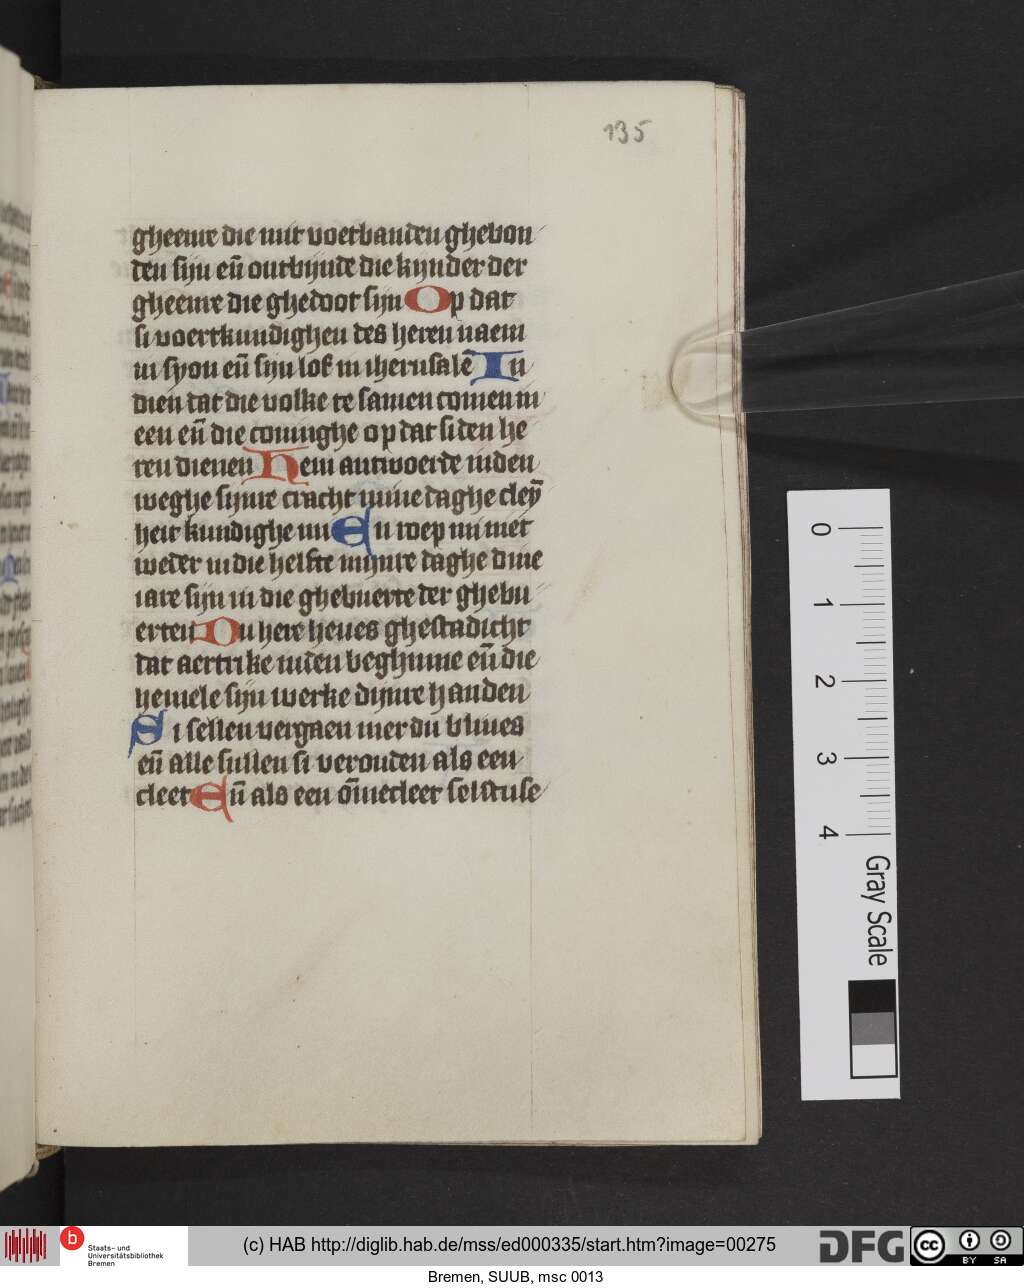 135
gheenre die mit voetbanden ghebon
den sijn eñ ontbijnde die kijnder der
gheenre die ghedoot sijn Op dat
si voertkundighen des heren naem
in syon eñ sijn lof in iherusalē In
dien dat die volke te samen comen in
een eñ die coninghe op dat si den he
ren dienen Hem antwoerde in den
weghe sijnre cracht mine daghe cleÿ
heit kundighe mi En roep mi niet
weder in die helfte mijnre daghe dine
iare sijn in die ghebuerte der ghebu
erten Du here heues ghestadicht
dat aertrike in den beghinne eñ die
hemele sijn werke dijnre handen
Si sellen vergaen mer du bliues
eñ alle sullen si verouden als een
cleet Eñ als een ōmecleet selstu se
0
1
2
3
4
Gray Scale
b
Staats- und
Universitätsbibliothek
Bremen
(c) HAB http://diglib.hab.de/mss/ed000335/start.htm?image=00275
DFG
cc
BY SA
Bremen, SUUB, msc 0013